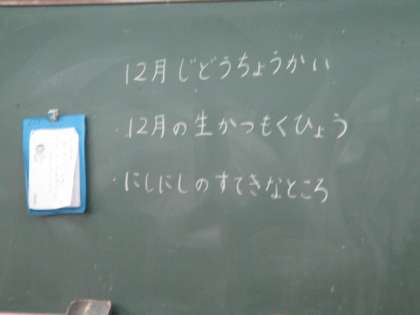 12月じどうちょうかい
・12月の生かつもくひょう
・にしにしのすてきなところ